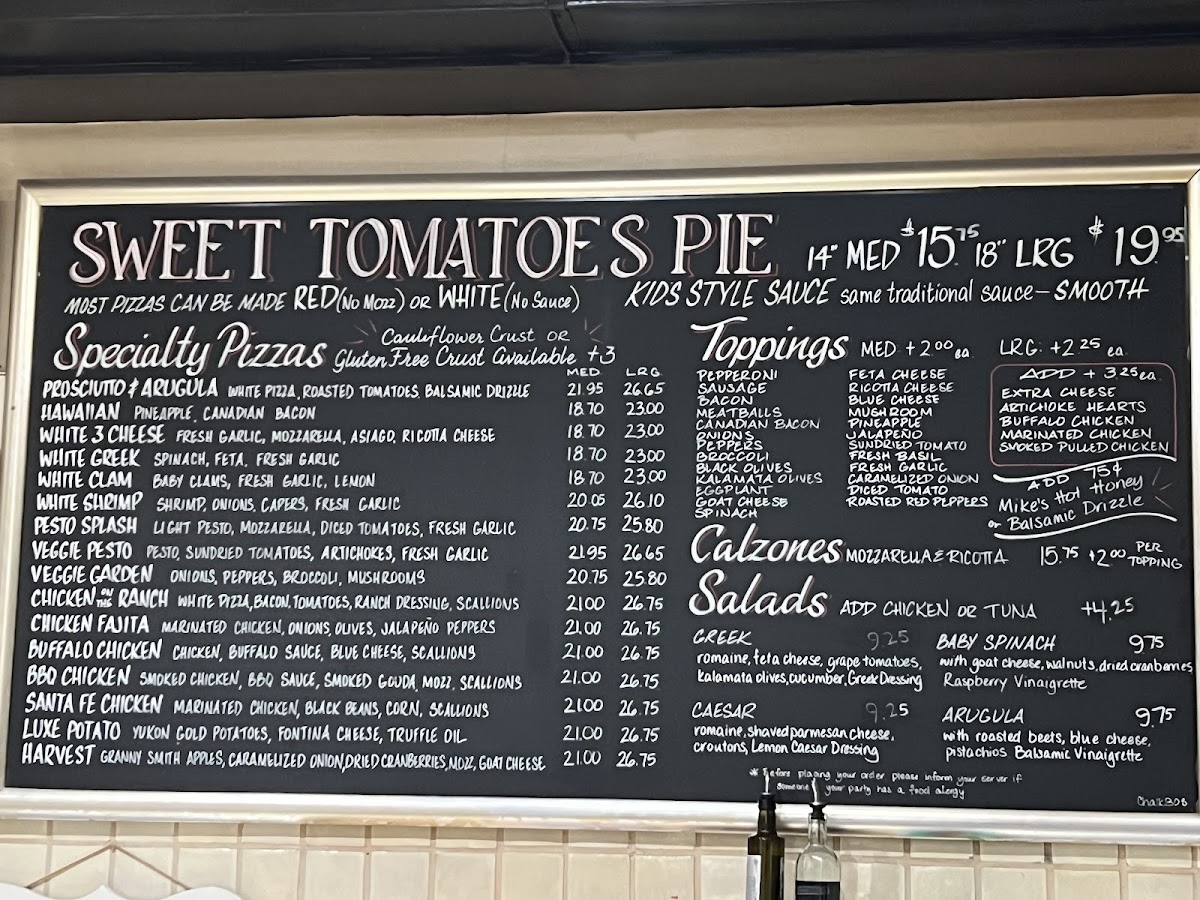 SWEET TOMATOES PIE 14" MED $15.75 18" LRG $19.95
MOST PIZZAS CAN BE MADE RED (No Mozz) OR WHITE (No Sauce)
KIDS STYLE SAUCE same traditional sauce - SMOOTH
Specialty Pizzas
Cauliflower Crust OR
Gluten Free Crust Available +3
MED. LRG.
PROSCIUTTO & ARUGULA WHITE PIZZA, ROASTED TOMATOES, BALSAMIC DRIZZLE 21.95 26.65
HAWAIIAN PINEAPPLE, CANADIAN BACON 18.70 23.00
WHITE 3 CHEESE FRESH GARLIC, MOZZARELLA, ASIAGO, RICOTTA CHEESE 18.70 23.00
WHITE GREEK SPINACH, FETA, FRESH GARLIC 18.70 23.00
WHITE CLAM BABY CLAMS, FRESH GARLIC, LEMON 18.70 23.00
WHITE SHRIMP SHRIMP, ONIONS, CAPERS, FRESH GARLIC 20.05 26.10
PESTO SPLASH LIGHT PESTO, MOZZARELLA, DICED TOMATOES, FRESH GARLIC 20.75 25.80
VEGGIE PESTO PESTO, SUNDRIED TOMATOES, ARTICHOKES, FRESH GARLIC 21.95 26.65
VEGGIE GARDEN ONIONS, PEPPERS, BROCCOLI, MUSHROOMS 20.75 25.80
CHICKEN ON THE RANCH WHITE PIZZA, BACON, TOMATOES, RANCH DRESSING, SCALLIONS 21.00 26.75
CHICKEN FAJITA MARINATED CHICKEN, ONIONS, OLIVES, JALAPEÑO PEPPERS 21.00 26.75
BUFFALO CHICKEN CHICKEN, BUFFALO SAUCE, BLUE CHEESE, SCALLIONS 21.00 26.75
BBQ CHICKEN SMOKED CHICKEN, BBQ SAUCE, SMOKED GOUDA, MOZZ, SCALLIONS 21.00 26.75
SANTA FE CHICKEN MARINATED CHICKEN, BLACK BEANS, CORN, SCALLIONS 21.00 26.75
LUXE POTATO YUKON GOLD POTATOES, FONTINA CHEESE, TRUFFLE OIL 21.00 26.75
HARVEST GRANNY SMITH APPLES, CARAMELIZED ONION, DRIED CRANBERRIES, MOZZ, GOAT CHEESE 21.00 26.75
Toppings MED +2.00 ea. LRG: +2.25 ea.
PEPPERONI
SAUSAGE
BACON
MEATBALLS
CANADIAN BACON
ONIONS
PEPPERS
BROCCOLI
BLACK OLIVES
KALAMATA OLIVES
EGGPLANT
GOAT CHEESE
SPINACH
FETA CHEESE
RICOTTA CHEESE
BLUE CHEESE
MUSHROOM
PINEAPPLE
JALAPEÑO
SUNDRIED TOMATO
FRESH BASIL
FRESH GARLIC
CARAMELIZED ONION
DICED TOMATO
ROASTED RED PEPPERS
ADD + 3.25 ea.
EXTRA CHEESE
ARTICHOKE HEARTS
BUFFALO CHICKEN
MARINATED CHICKEN
SMOKED PULLED CHICKEN
ADD 75¢
Mike's Hot Honey
or Balsamic Drizzle
Calzones MOZZARELLA & RICOTTA 15.75 +2.00 PER TOPPING
Salads ADD CHICKEN OR TUNA +4.25
GREEK 9.25
romaine, feta cheese, grape tomatoes,
kalamata olives, cucumber, Greek Dressing
CAESAR 9.25
romaine, shaved parmesan cheese,
croutons, Lemon Caesar Dressing
BABY SPINACH 9.75
with goat cheese, walnuts, dried cranberries
Raspberry Vinaigrette
ARUGULA 9.75
with roasted beets, blue cheese,
pistachios Balsamic Vinaigrette
* Before placing your order please inform your server if
someone your party has a food alergy
Chalk BOB